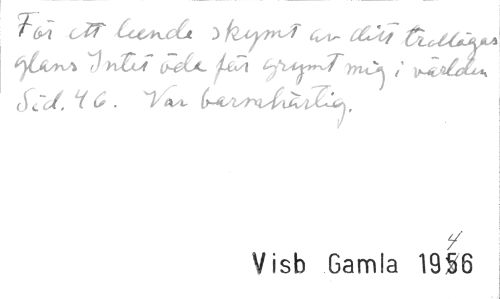 För ett leende skymt av ditt trollögas
glans Intet öde för grymt mig i världen
Sid. 46. Var barmhärtig.
4
Visb Gamla 1956